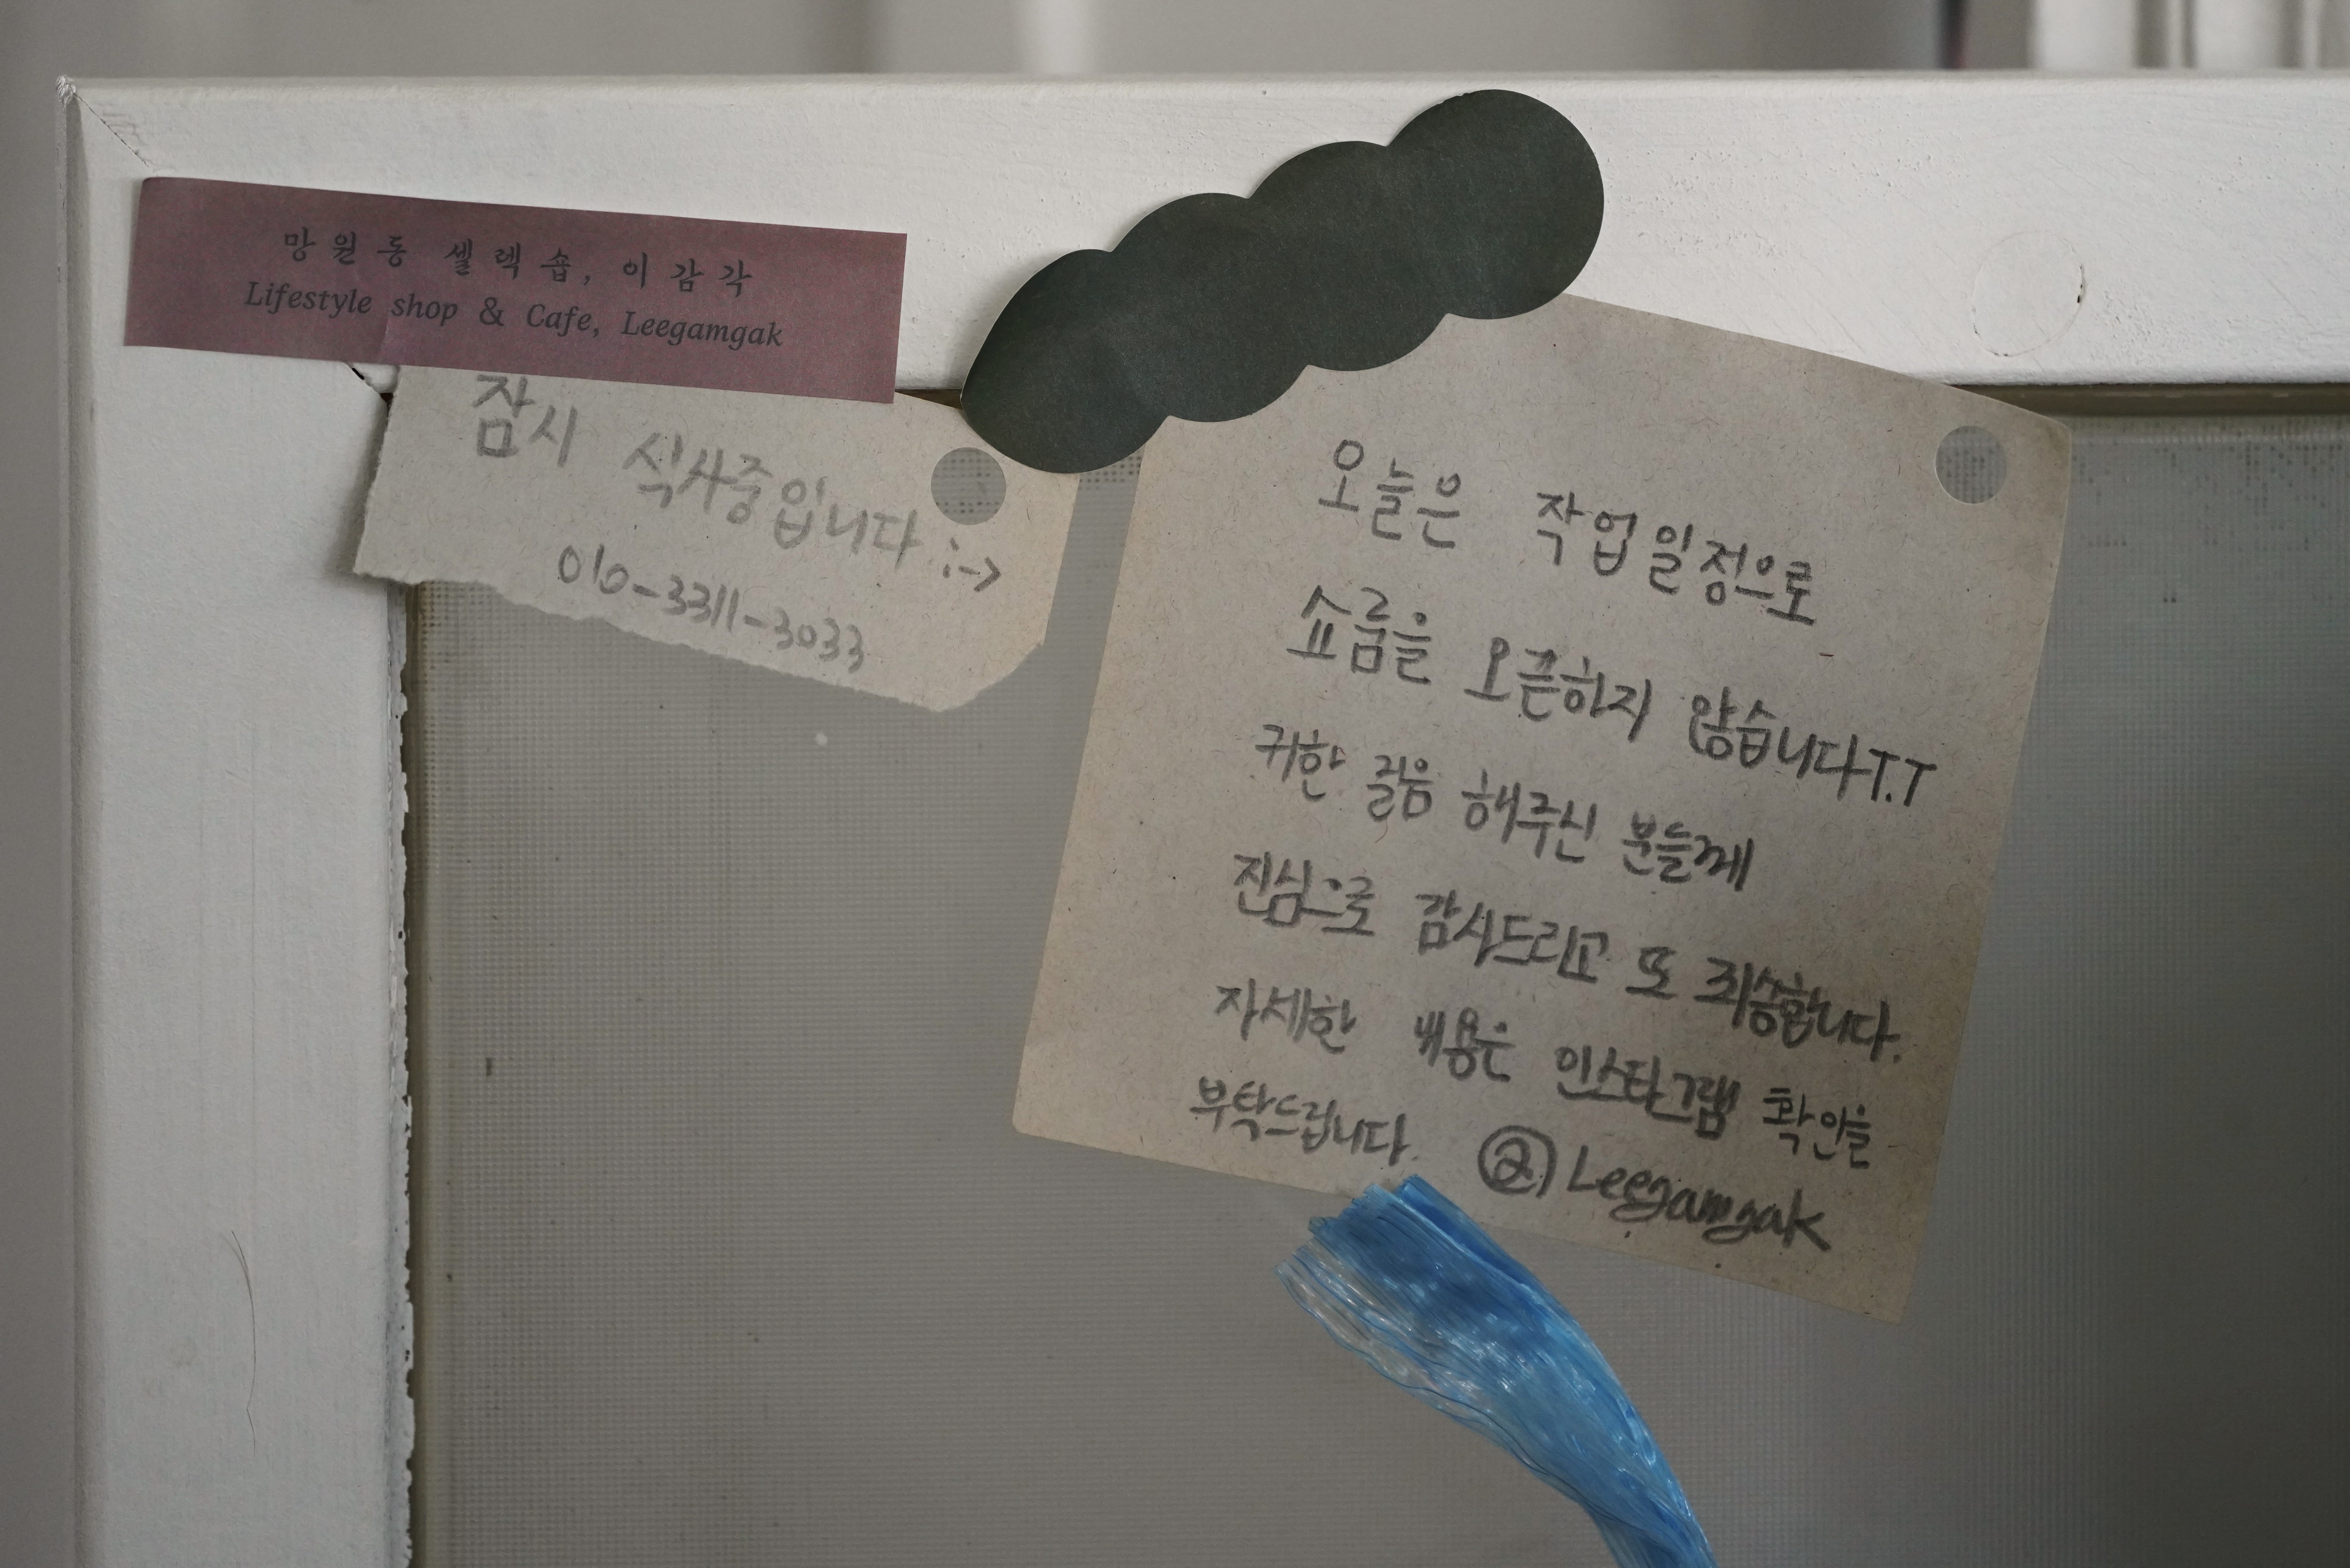 망원동 셀렉숍, 이감각
Lifestyle shop & Cafe, Leegamgak
잠시 식사중입니다 :->
010-3311-3033
오늘은 작업일정으로
쇼룸을 오픈하지 않습니다T.T
귀한 걸음 해주신 분들께
진심으로 감사드리고 또 죄송합니다.
자세한 내용은 인스타그램 확인을
부탁드립니다. @Leegamgak